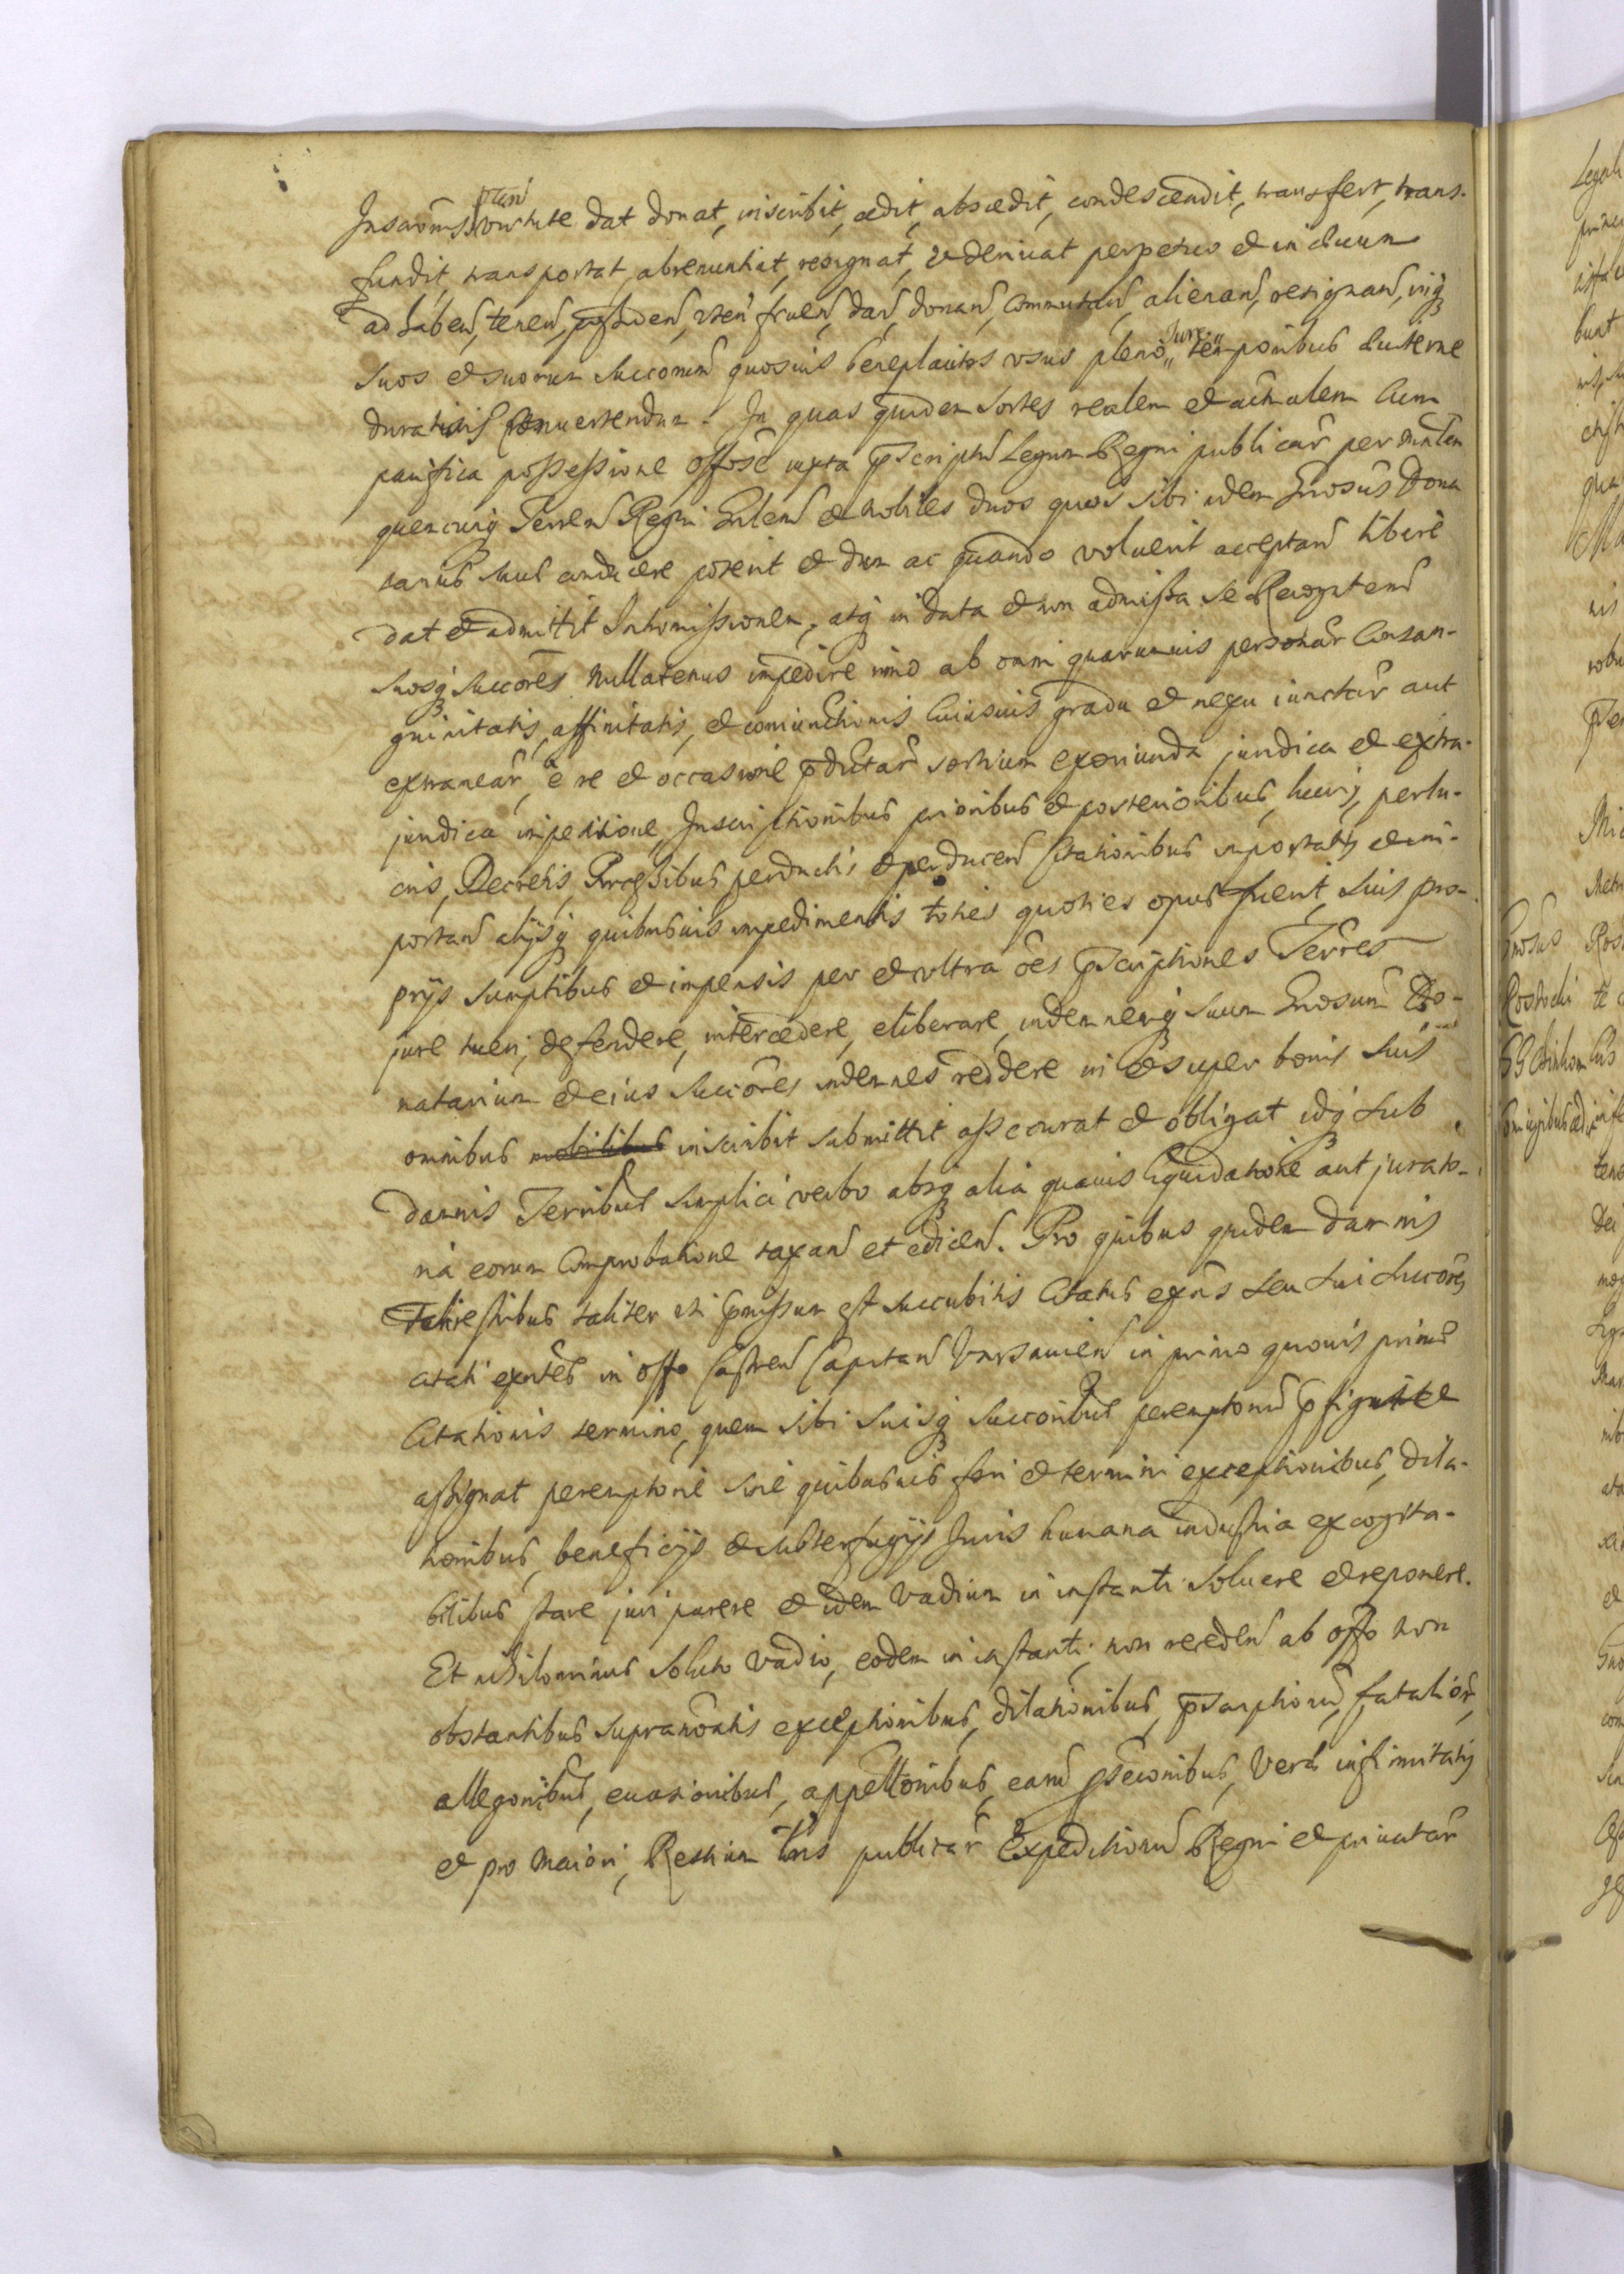 ptan
Inscrōnis virtute dat donat, inscribit, cædit, abscædit, condescendit, transfert, trans-
fundit, transportat, abrenuntiat, resignat, et deriuat perpetuo et in æuum
ad haben̄, tenen̄, possiden̄, vten̄ fruen̄, dan̄, donan̄, commutan̄, alienan̄, resignan̄, inq̨
suos et suorum succorum̄ quosuis beneplacitos vsus pleno Iure temporibus æuiterne
duraturis conuertendum. In quas quidem sortes realem et actualem cum
pacifica possessione offōse iuxta p̄scriptum̄ Legum Regni publicar̄ per Ministrm̄
quemcunq̨ Terren̄ Regni Gnlem̄ et nobiles duos quos sibi idem Gnosus Dona
tarius suus conducere poterit et dum ac quando voluerit acceptan̄ liberè
dat et admittit Intromissionem, atq̨ in data et non admissa se Recognten̄
suosq̨ succōres nullatenus impedire imo ab omni quarumuis personar̄ Consan-
guinitatis, affinitatis, et coniunctionis cuiusuis gradu et nexu iunctar̄ aut
extranear̄, è re et occasione p̄dictar̄ sortium exoriunda juridica et extra-
juridica impetitione, Inscriptionibus prioribus et posterioribus, lucris, perlu-
cris, Decretis, Processibus perductis et perducen̄ Citationibus importatis et im-
portan̄ alijsq̨ quibusuis impedimentis toties quoties opus fuerit, suis pro-
prijs sumptibus et impensis per et vltra ōes p̄scriptiones Terrēs
jure tueri, defendere, intercædere, eliberare, indemnemq̨ suum Gnosum Do-
natarium et eius succōres indemnes reddere in et super bonis suis
omnibus mobilibus inscribit submittit assecurat et obligat idq̨ sub
damnis Terribus simplici verbo absq̨ alia quauis liquidatione aut jurato-
ria eorum comprobatione taxan̄ et edicen̄. Pro quibus quidem damnis
Talirestribus taliter vti p̄missum est succubitis citatus exn̄s seu sui succōres
citati exn̄tes in offo Castren̄ Capitan̄ Varsauien̄ in primo quouis primæ
Citationis termino, quem sibi suisq̨ succoribus peremptorium̄ p̄figit et
assignat peremptoriè sine quibusuis fori et termini exceptionibus, dila-
tionibus, beneficijs et subterfugijs Iuris humana industria excogita-
bilibus stare juri parere et idem Vadium in instanti soluere et reponere.
Et nihilominus soluto Vadio, eodem in instanti, non receden̄ ab offo non
obstantibus supranōtatis exceptionibus, dilationibus, p̄scriptionum̄, fatalior̄,
allegonibus, euasionibus, appellōnibus, earum̄ p̄secōnibus, Veræ infirmitatis
et pro maiori, Restium trn̄s publicar̄ Expeditionum̄ Regni et priuatar̄